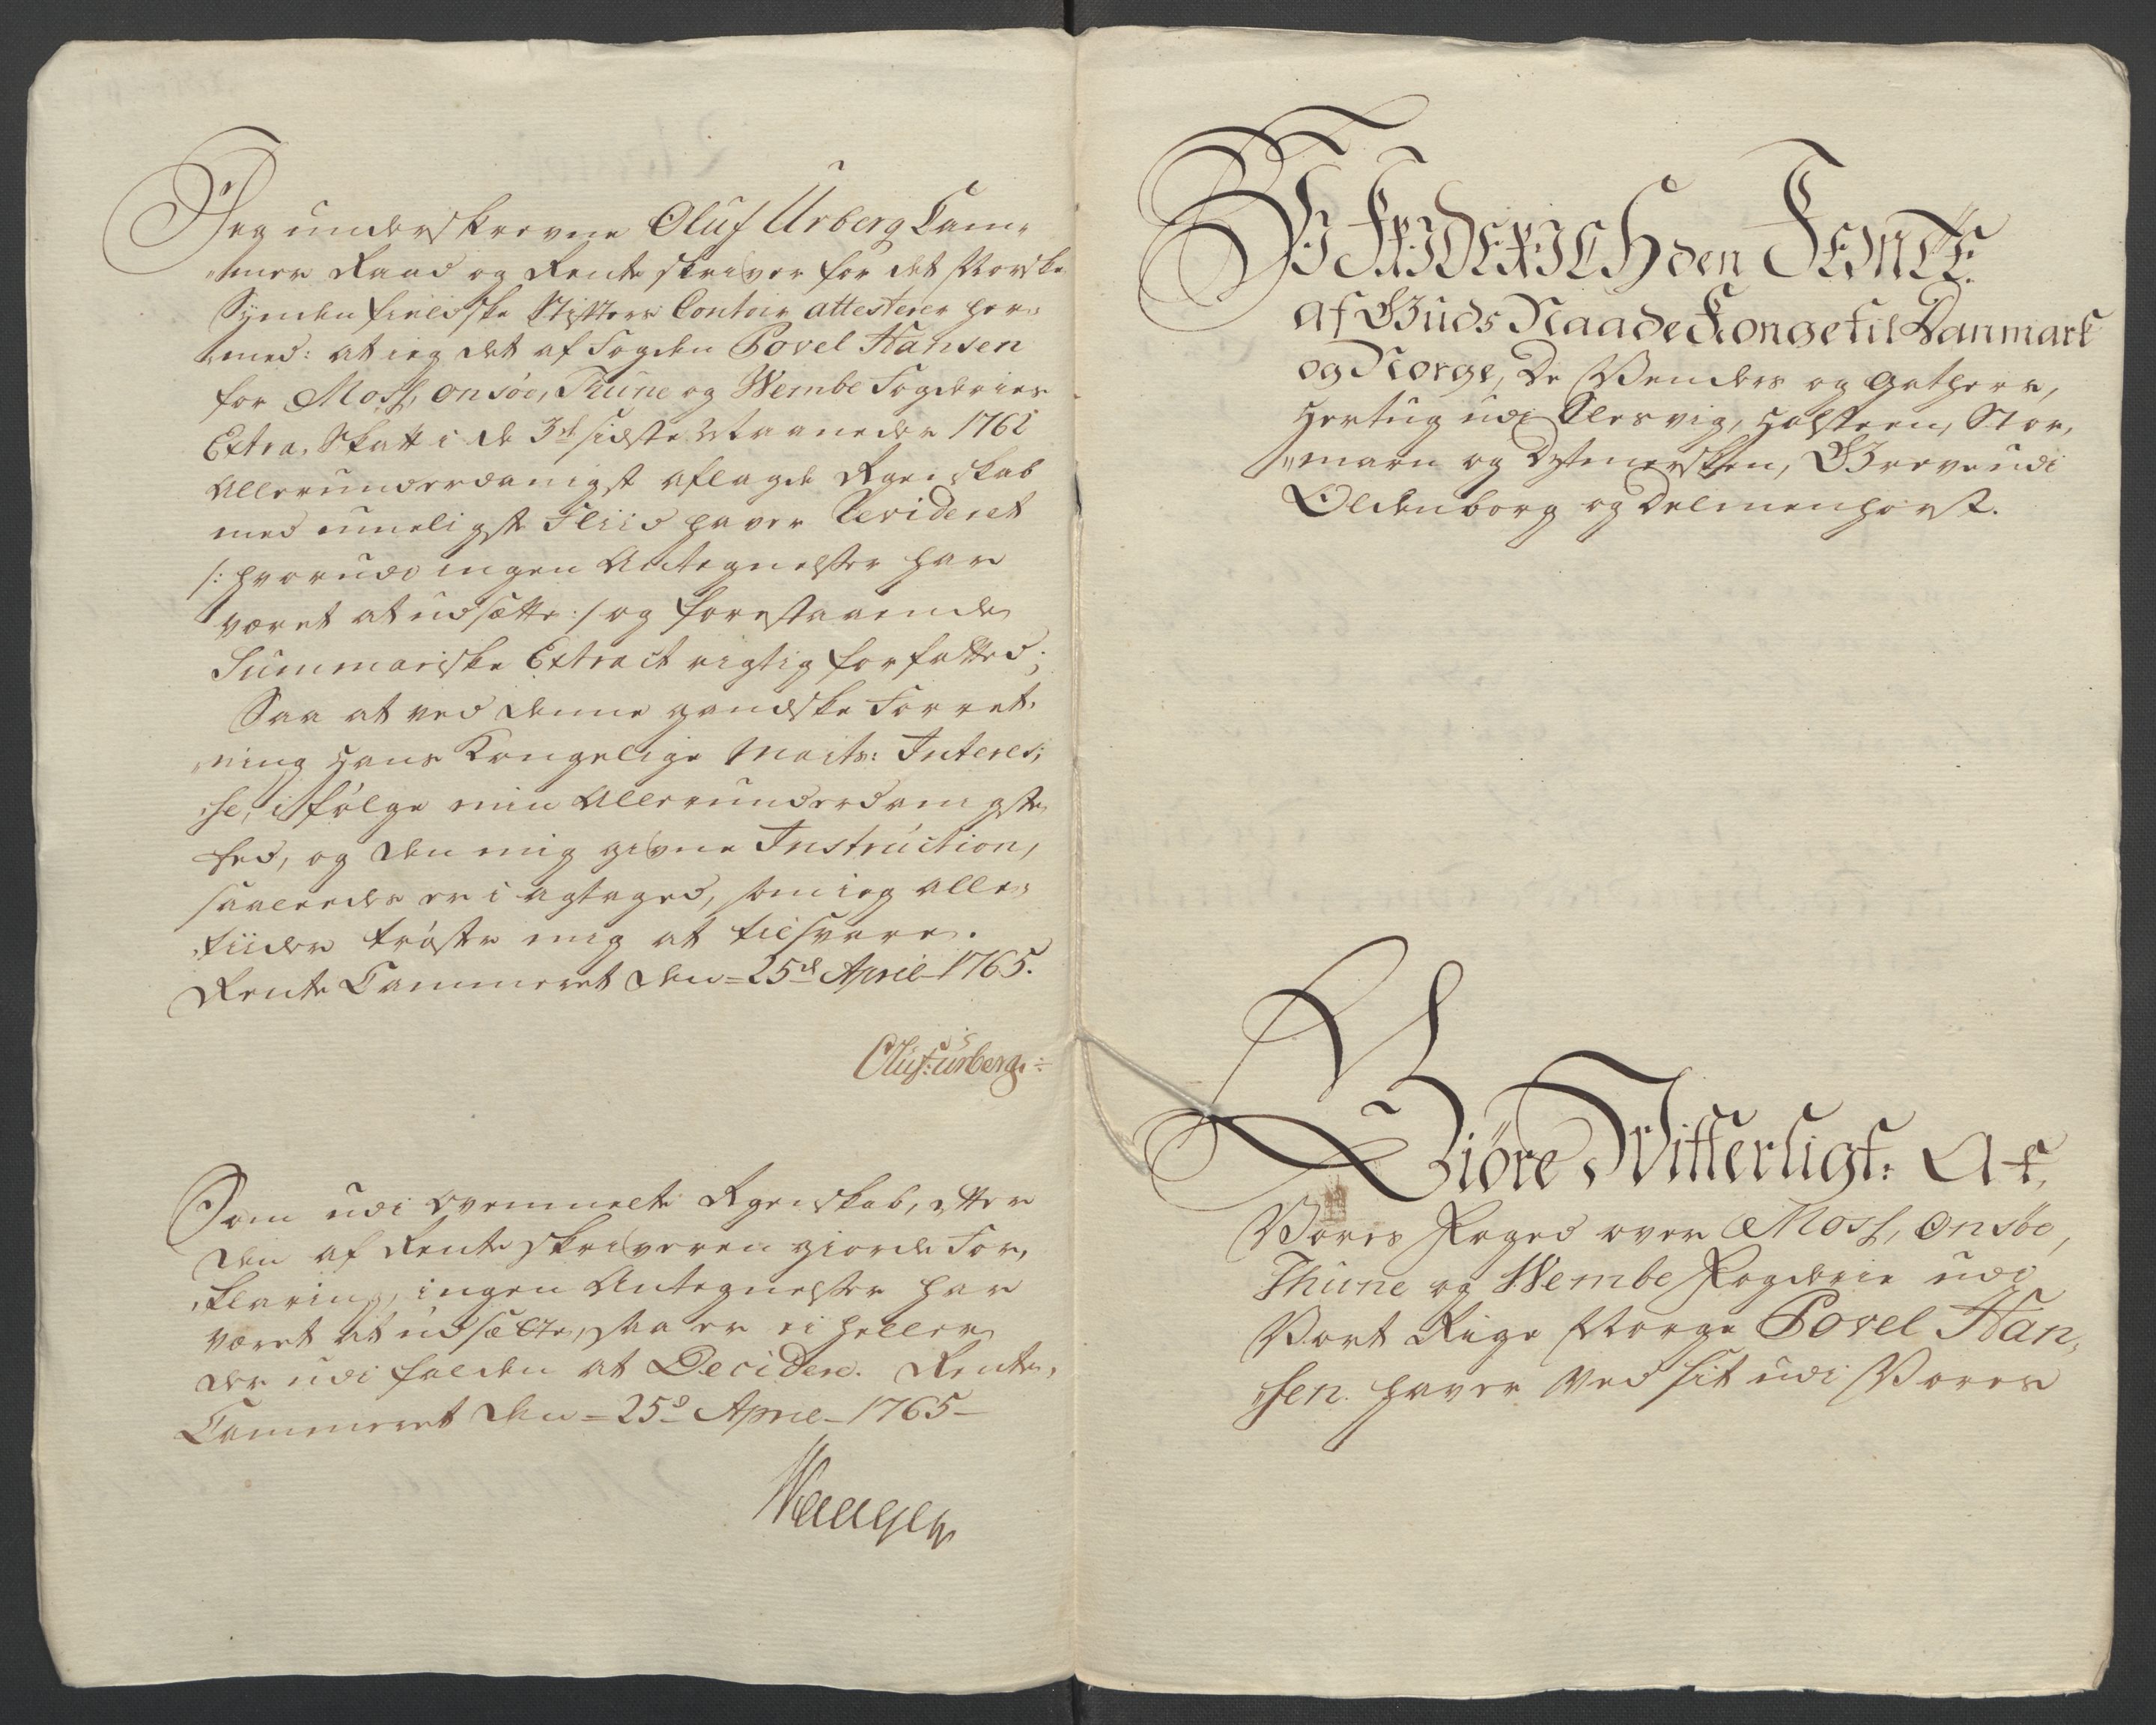 Jeg underskrevne Oluf Urberg Cam-
mer Raad og Renteskriver for det Norske
Syndenfieldske Stifters Contoir attesterer her-
med: at ieg det af Fogden Povel Hansen
for Moss, Onsöe, Thune og Wembe Fogderier
Extra. Skatt i de 3de sidste Maaneder 1762
Allerunderdanigst aflagde Regenskab
med muueligste Fliid haver Revideret
/: hvorudi ingen Antegnelser har
været at udsætte :/ og forestaaende
Summariske Extract rigtig forfatted;
Saa at ved denne gandske Forret-
ning Hans Kongelige Maits: Interes-
se, i følge min Allerunderdanigste
Eed, og den mig givne Instruction,
saaleedes er i agtaged, som ieg alle-
tiider trøster mig at tilsvare.
Rente Cammeret den 25de April 1765.
Oluf: Urberg.
Som udi ovenmelte Regenskab, efter
den af Renteskriveren giorde For-
klaring, ingen Antegnelser har
været at udsætte, saa er ei heller
der udi falden at Decidere. Rente-
Cammeret den 25de April 1765
Waager
VI FRIDERICH den FEMTE
af Guds Naade Konge til Danmark
og Norge, De Venders og Gothers,
Hertug udi Slesvig, Holsteen, Stor-
marn og Dytmersken, Greve udi
Oldenborg og Delmenhorst.
Giöre Witterligt: At,
Vores Foged over Moss, Onsöe,
Thune og Wembe Fogderie udi
Vort Rige Norge Povel Han-
sen haver Ved sit udi Vores